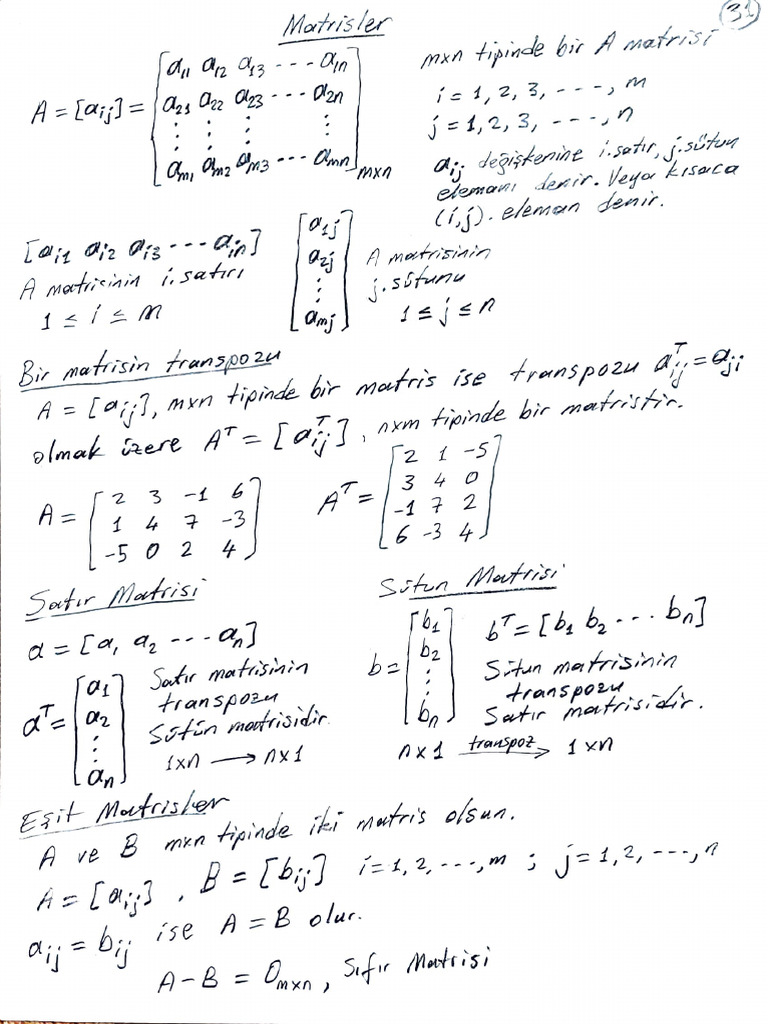 31
Matrisler
A = [aij] = [a11 a12 a13 --- a1n
a21 a22 a23 --- a2n
⋮ ⋮ ⋮ ⋮
am1 am2 am3 --- amn]mxn
mxn tipinde bir A matrisi
i = 1, 2, 3, ---, m
j = 1, 2, 3, ---, n
aij değişkenine i.satır, j.sütun
elemanı denir. Veya kısaca
(i,j). eleman denir.
[ai1 ai2 ai3 --- ain]
A matrisinin i.satırı
1 ≤ i ≤ m
[a1j
a2j
⋮
amj]
A matrisinin
j.sütunu
1 ≤ j ≤ n
Bir matrisin transpozu
A = [aij], mxn tipinde bir matris ise transpozu aᵀij = aji
olmak üzere Aᵀ = [aᵀij], nxm tipinde bir matristir.
A = [2 3 -1 6
1 4 7 -3
-5 0 2 4]
Aᵀ = [2 1 -5
3 4 0
-1 7 2
6 -3 4]
Satır Matrisi
a = [a1 a2 --- an]
aᵀ = [a1
a2
⋮
an]
Satır matrisinin
transpozu
Sütün matrisidir.
1xn → nx1
Sütun Matrisi
b = [b1
b2
⋮
bn]
bᵀ = [b1 b2 --- bn]
Sütun matrisinin
transpozu
Satır matrisidir.
nx1 transpoz → 1xn
Eşit Matrisler
A ve B mxn tipinde iki matris olsun.
A = [aij], B = [bij] i = 1, 2, ---, m ; j = 1, 2, ---, n
aij = bij ise A = B olur.
A - B = 0mxn, Sıfır Matrisi